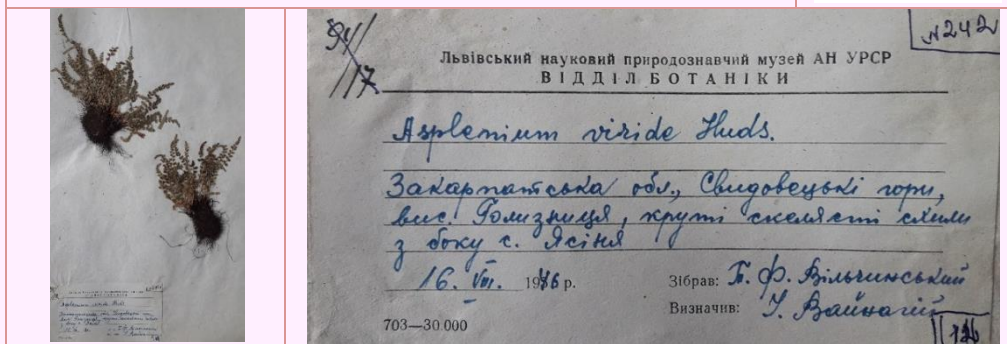 94/17
N242
Львівський науковий природознавчий музей АН УРСР
ВІДДІЛ БОТАНІКИ
Asplenium viride Huds.
Закарпатська обл., Свидовецькі гори,
вис. Голизниця, круті скелясті схили
з боку с. Ясіня
16. VIII. 1976 р.
Зібрав: Б. Ф. Вільчинський
Визначив: І. Вайнагій
703—30.000